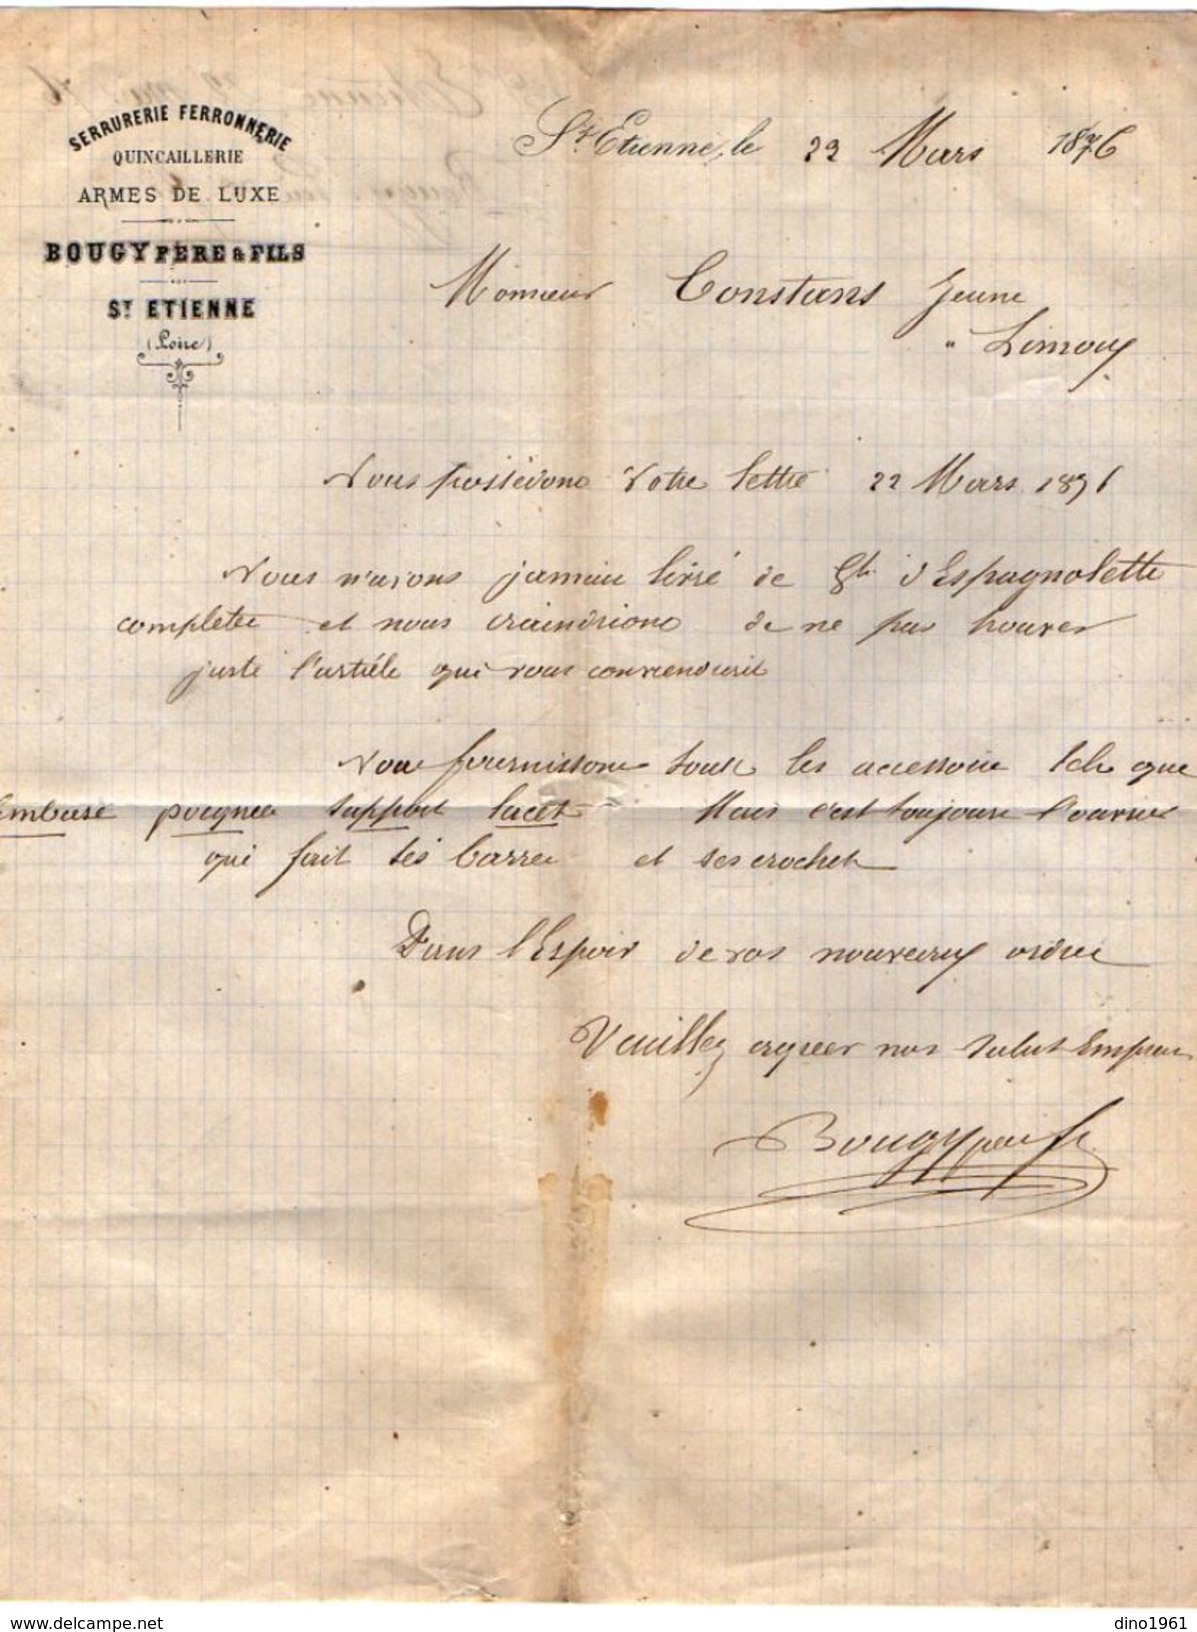 SERRURERIE FERRONNERIE
QUINCAILLERIE
ARMES DE LUXE
BOUGY PÈRE & FILS
ST ETIENNE
(Loire)
St Etienne, le 29 Mars 1876
Monsieur Constans Jeune
à Limoux
Nous possedons votre lettre 22 Mars 1876
Nous n'avons jamais livré de d'Espagnolette
completes et nous craindrions de ne pas trouver
juste l'article qui vous conviendrait
Nous fournissons tous les accessoires tels que
Embase poignees support lacet Mais c'est toujours l'ouvrier
qui fait ses barres et ses crochets
Dans l'Espoir de vos nouveaux ordres
Veuillez agreer nos saluts Empres
Bougy pere & fs
www.delcampe.net
dino1961